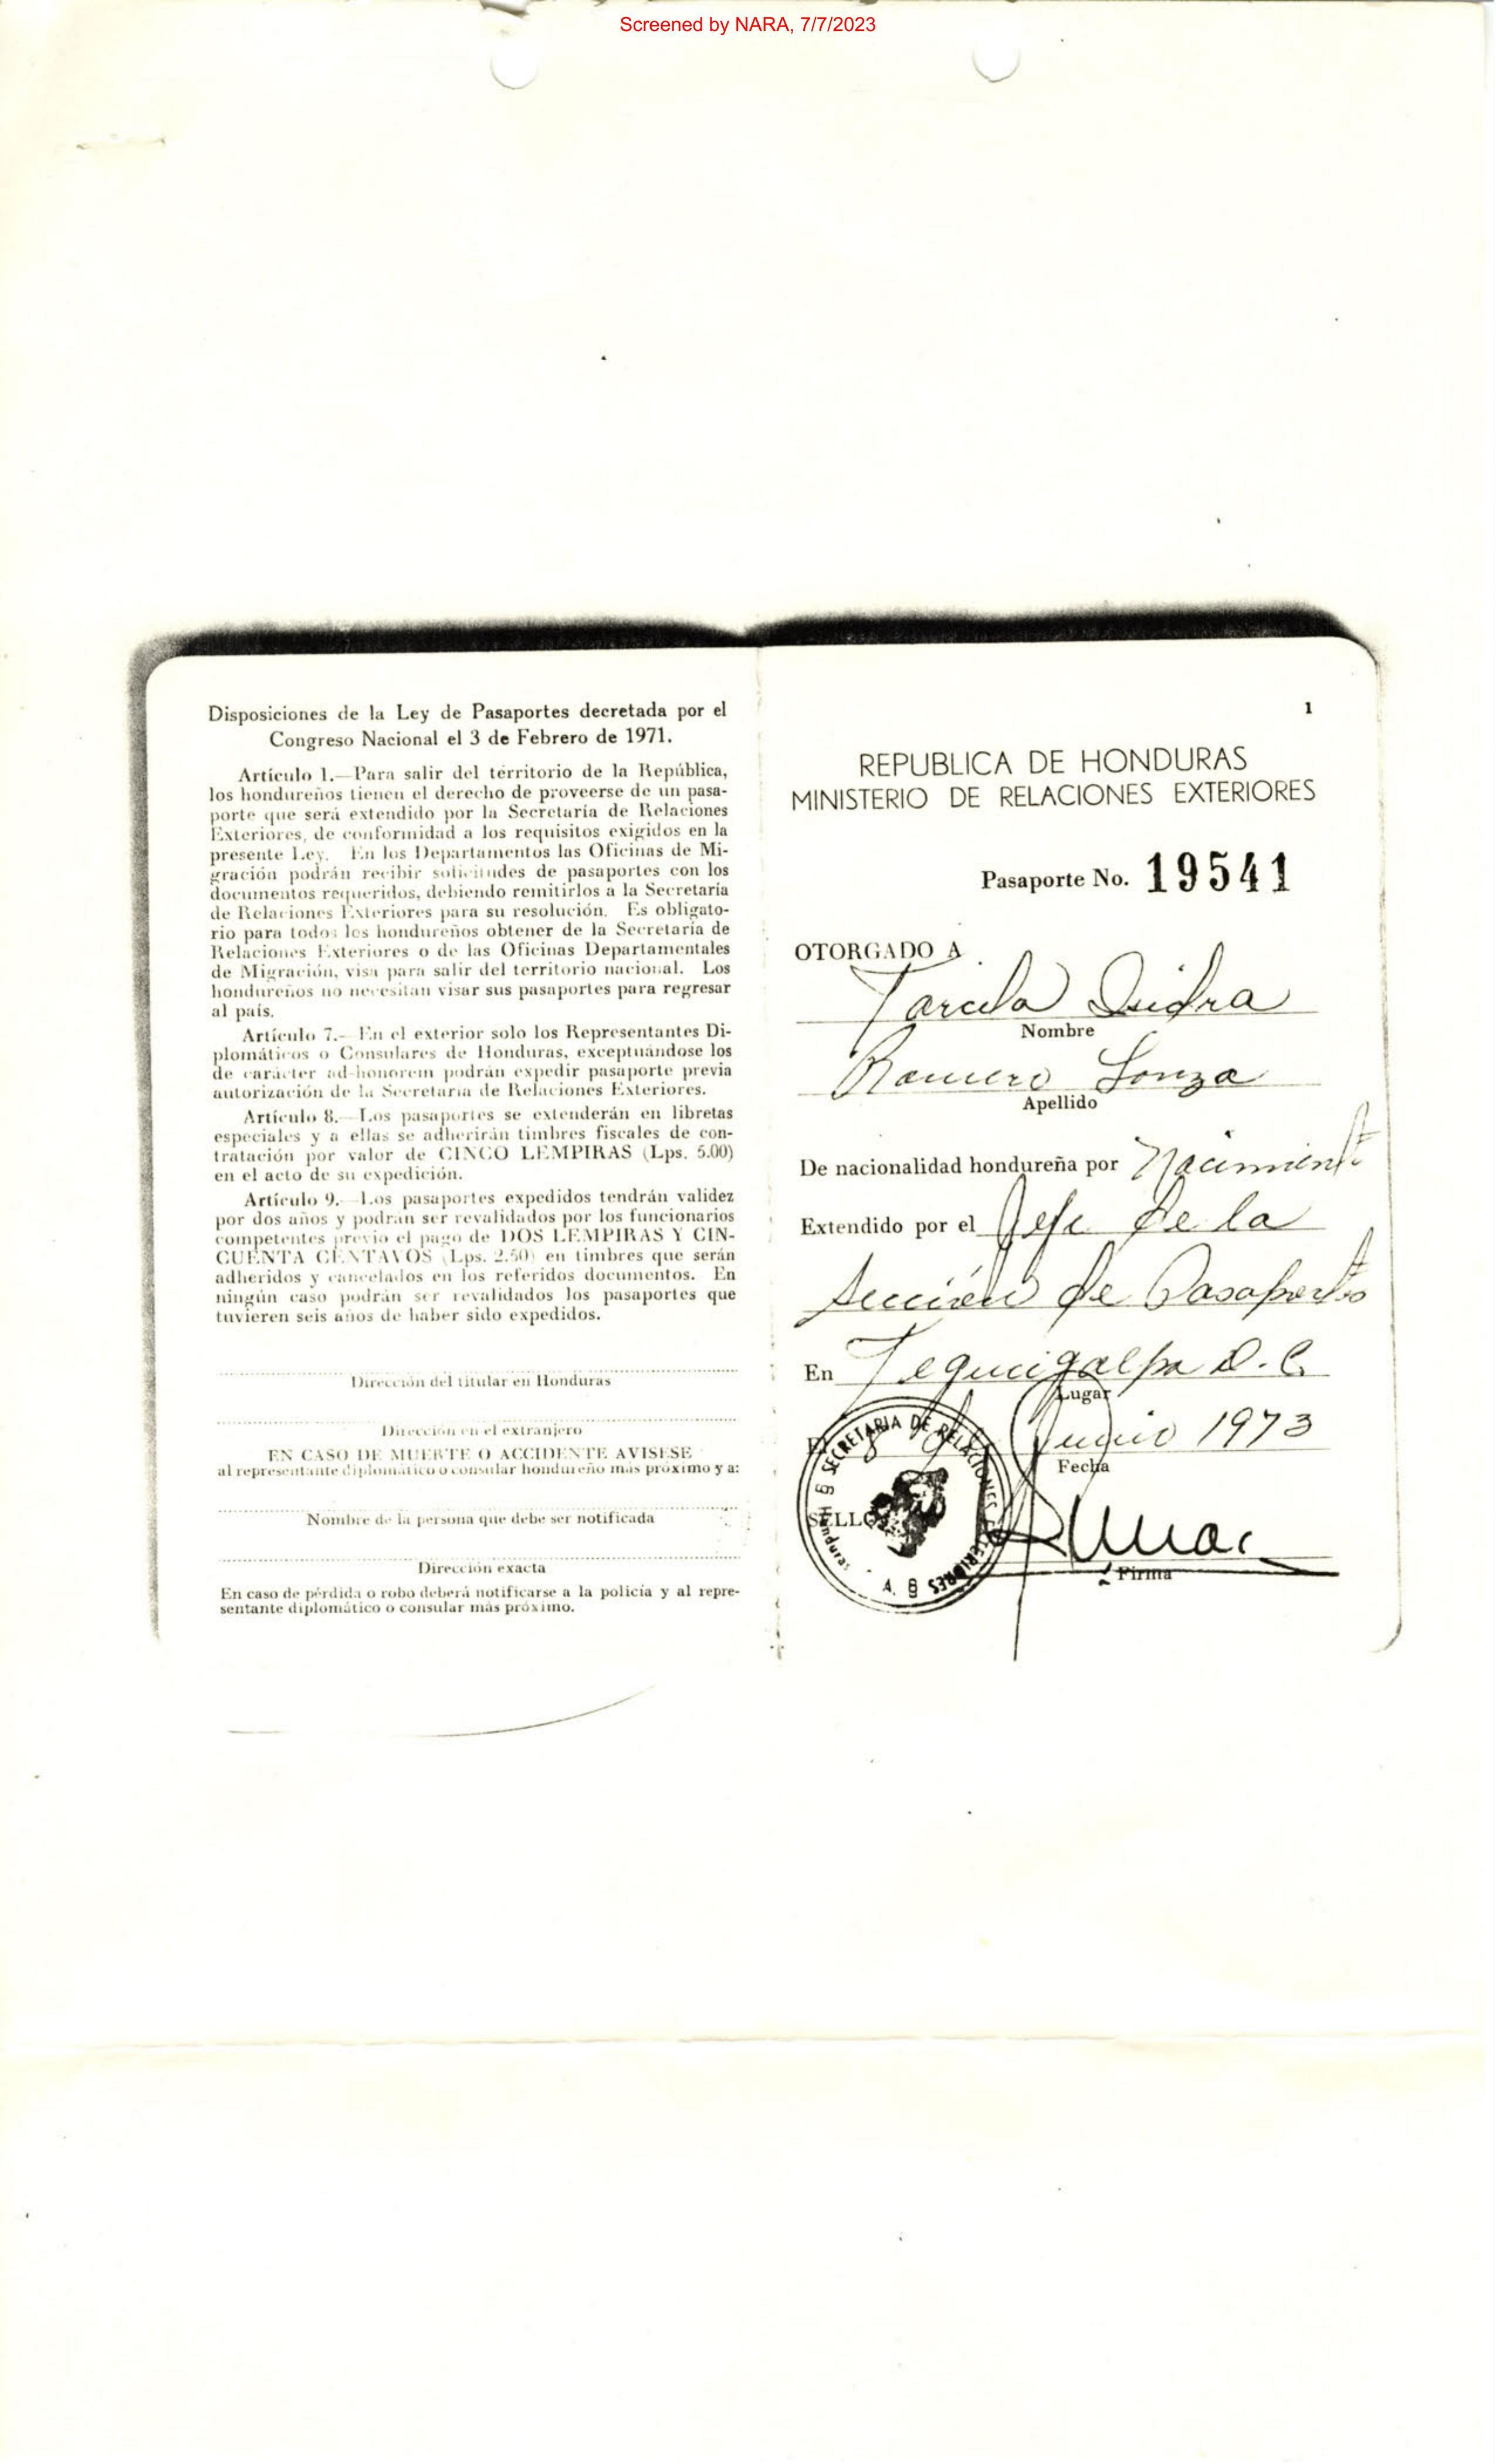 Screened by NARA, 7/7/2023
Disposiciones de la Ley de Pasaportes decretada por el
Congreso Nacional el 3 de Febrero de 1971.
Artículo 1.—Para salir del territorio de la República,
los hondureños tienen el derecho de proveerse de un pasa-
porte que será extendido por la Secretaría de Relaciones
Exteriores, de conformidad a los requisitos exigidos en la
presente Ley. En los Departamentos las Oficinas de Mi-
gración podrán recibir solicitudes de pasaportes con los
documentos requeridos, debiendo remitirlos a la Secretaría
de Relaciones Exteriores para su resolución. Es obligato-
rio para todos los hondureños obtener de la Secretaría de
Relaciones Exteriores o de las Oficinas Departamentales
de Migración, visa para salir del territorio nacional. Los
hondureños no necesitan visar sus pasaportes para regresar
al país.
Artículo 7.— En el exterior solo los Representantes Di-
plomáticos o Consulares de Honduras, exceptuándose los
de carácter ad-honorem podrán expedir pasaporte previa
autorización de la Secretaría de Relaciones Exteriores.
Artículo 8.—Los pasaportes se extenderán en libretas
especiales y a ellas se adherirán timbres fiscales de con-
tratación por valor de CINCO LEMPIRAS (Lps. 5.00)
en el acto de su expedición.
Artículo 9.—Los pasaportes expedidos tendrán validez
por dos años y podrán ser revalidados por los funcionarios
competentes previo el pago de DOS LEMPIRAS Y CIN-
CUENTA CENTAVOS (Lps. 2.50) en timbres que serán
adheridos y cancelados en los referidos documentos. En
ningún caso podrán ser revalidados los pasaportes que
tuvieren seis años de haber sido expedidos.
Dirección del titular en Honduras
Dirección en el extranjero
EN CASO DE MUERTE O ACCIDENTE AVISESE
al representante diplomático o consular hondureño más próximo y a:
Nombre de la persona que debe ser notificada
Dirección exacta
En caso de pérdida o robo deberá notificarse a la policía y al repre-
sentante diplomático o consular más próximo.
1
REPUBLICA DE HONDURAS
MINISTERIO DE RELACIONES EXTERIORES
Pasaporte No. 19541
OTORGADO A
Nombre
Romero
Apellido
De nacionalidad hondureña por Nacimiento
Extendido por el Jefe de la
Sección de Pasaportes
En Tegucigalpa D.C.
Lugar
Junio 1973
Fecha
SELLO
SECRETARIA DE RELACIONES EXTERIORES
Honduras
Firma